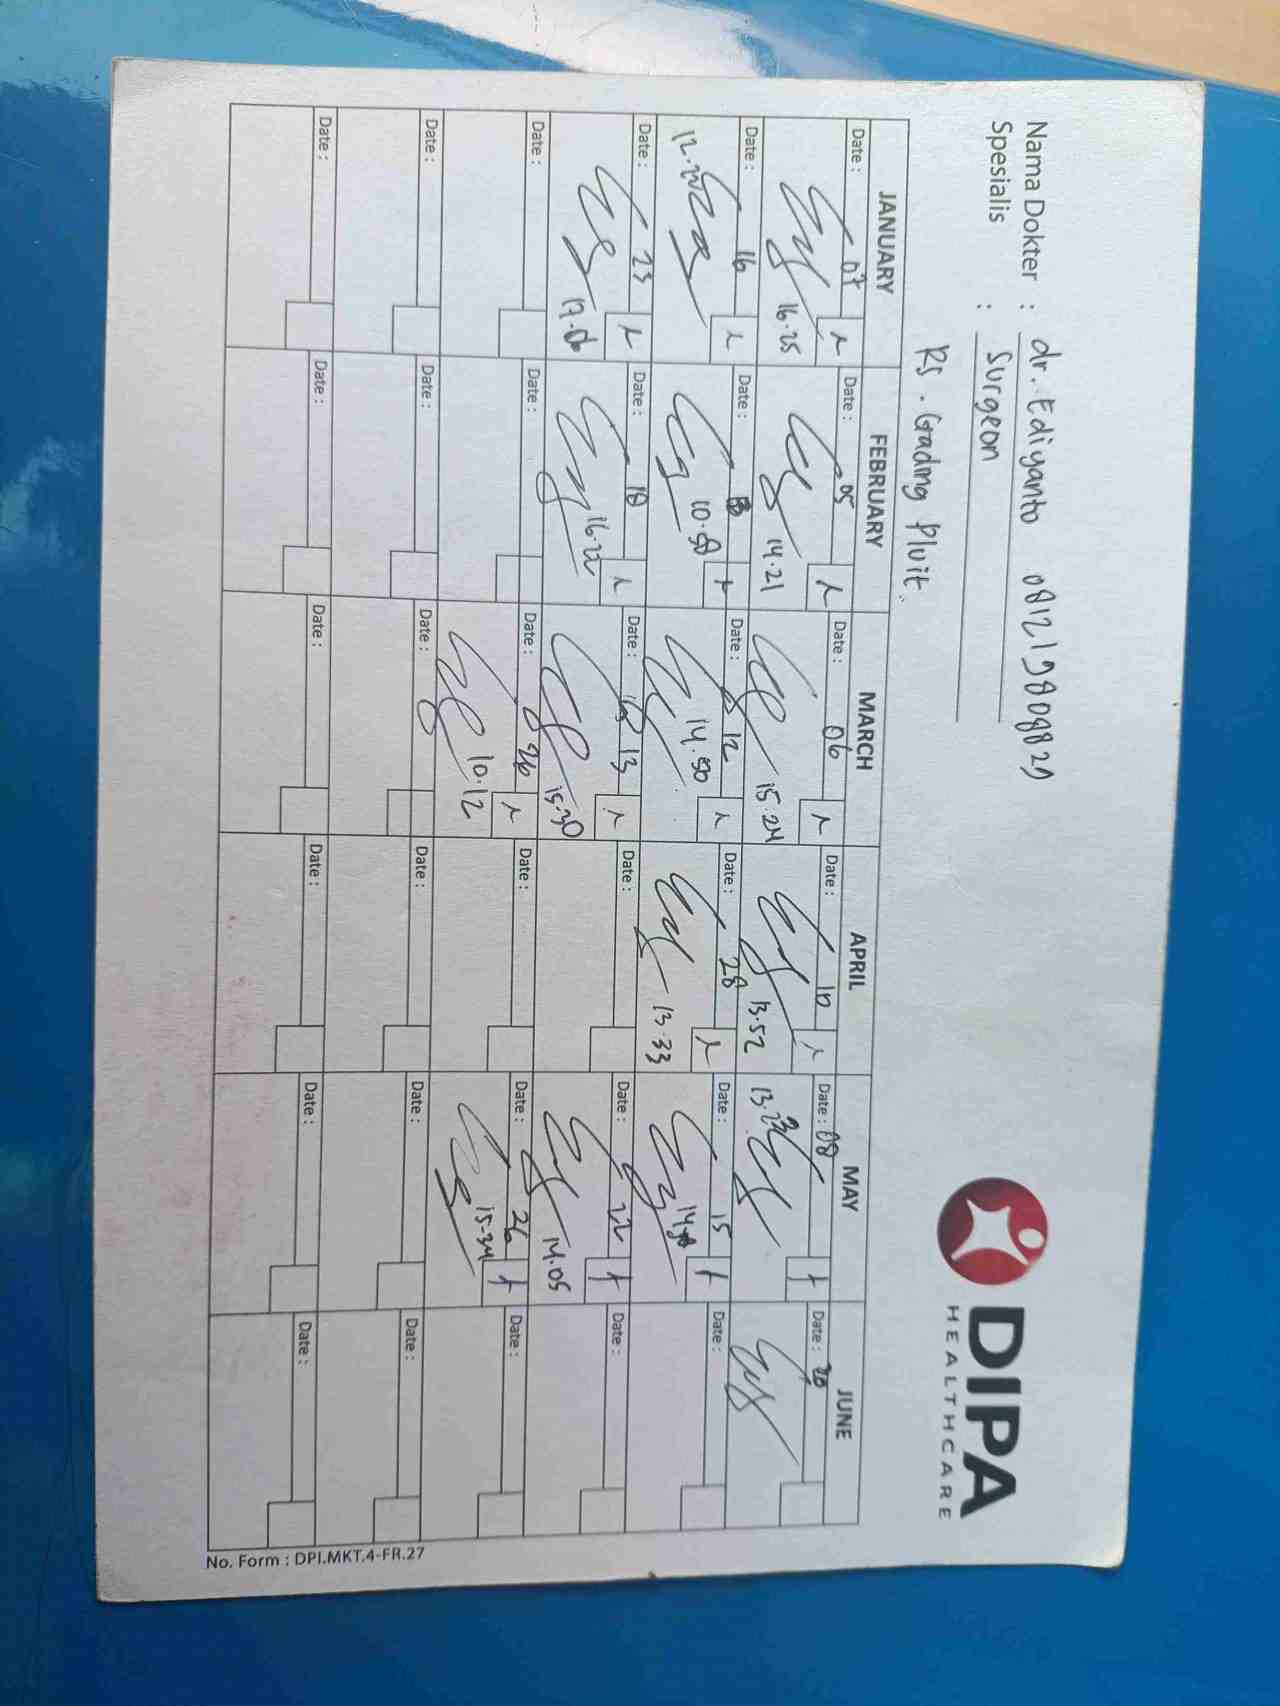 Nama Dokter : dr. Ediyanto 081219808829
Spesialis : Surgeon
Rs. Gading Pluit.
DIPA
HEALTHCARE
JANUARY FEBRUARY MARCH APRIL MAY JUNE
Date : 07 Date : 05 Date : 06 Date : 10 Date : 08 Date : 20
16.25 14.21 15.24 13.52 13.23
Date : 16 Date : Date : 12 Date : 28 Date : 15 Date :
12.22 10.50 14.50 13.33
Date : 23 Date : 18 Date : 13 Date : Date : 22 Date :
16.22 15.30 14.05
Date : Date : Date : 26 Date : Date : 26 Date :
10.12 15.34
Date : Date : Date : Date : Date : Date :
Date : Date : Date : Date : Date : Date :
No. Form : DPI.MKT.4-FR.27